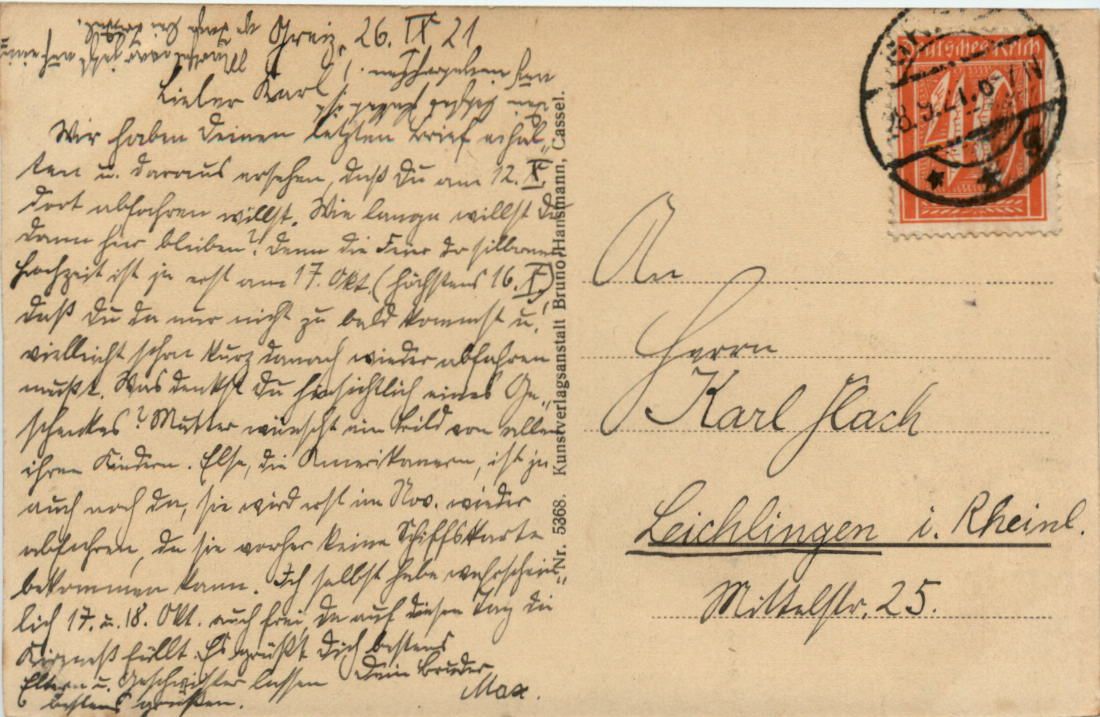 Greiz, 26. IX 21
Lieber Karl!
Wir haben Deinen letzten Brief erhal-
ten u. daraus ersehen, daß Du am 12. X.
dort abfahren willst. Wie lange willst Du
dann hier bleiben? Denn die Feier der silbernen
Hochzeit ist ja erst am 17. Okt. (höchstens 16. X.)
daß Du da nur nicht zu bald kommst u.
vielleicht schon kurz danach wieder abfahren
mußt. Was denkst Du hinsichtlich eines Ge-
schenkes? Mutter wünscht ein Bild von allen
ihren Kindern. Else, die Amerikanerin, ist ja
auch noch da, sie wird erst im Nov. wieder
abfahren, da sie vorher keine Schiffskarte
bekommen kann. Ich selbst habe wahrschein-
lich 17. u. 18. Okt. auch frei da auf diesen Tag die
Kirmeß fällt. Es grüßt Dich bestens
Dein Bruder
Max.
Eltern u. Geschwister lassen
bestens grüßen.
Nr. 5368. Kunstverlagsanstalt Bruno Hansmann, Cassel.
Deutsches Reich
28.9.21
An
Herrn
Karl Flach
Leichlingen i. Rheinl.
Mittelstr. 25.